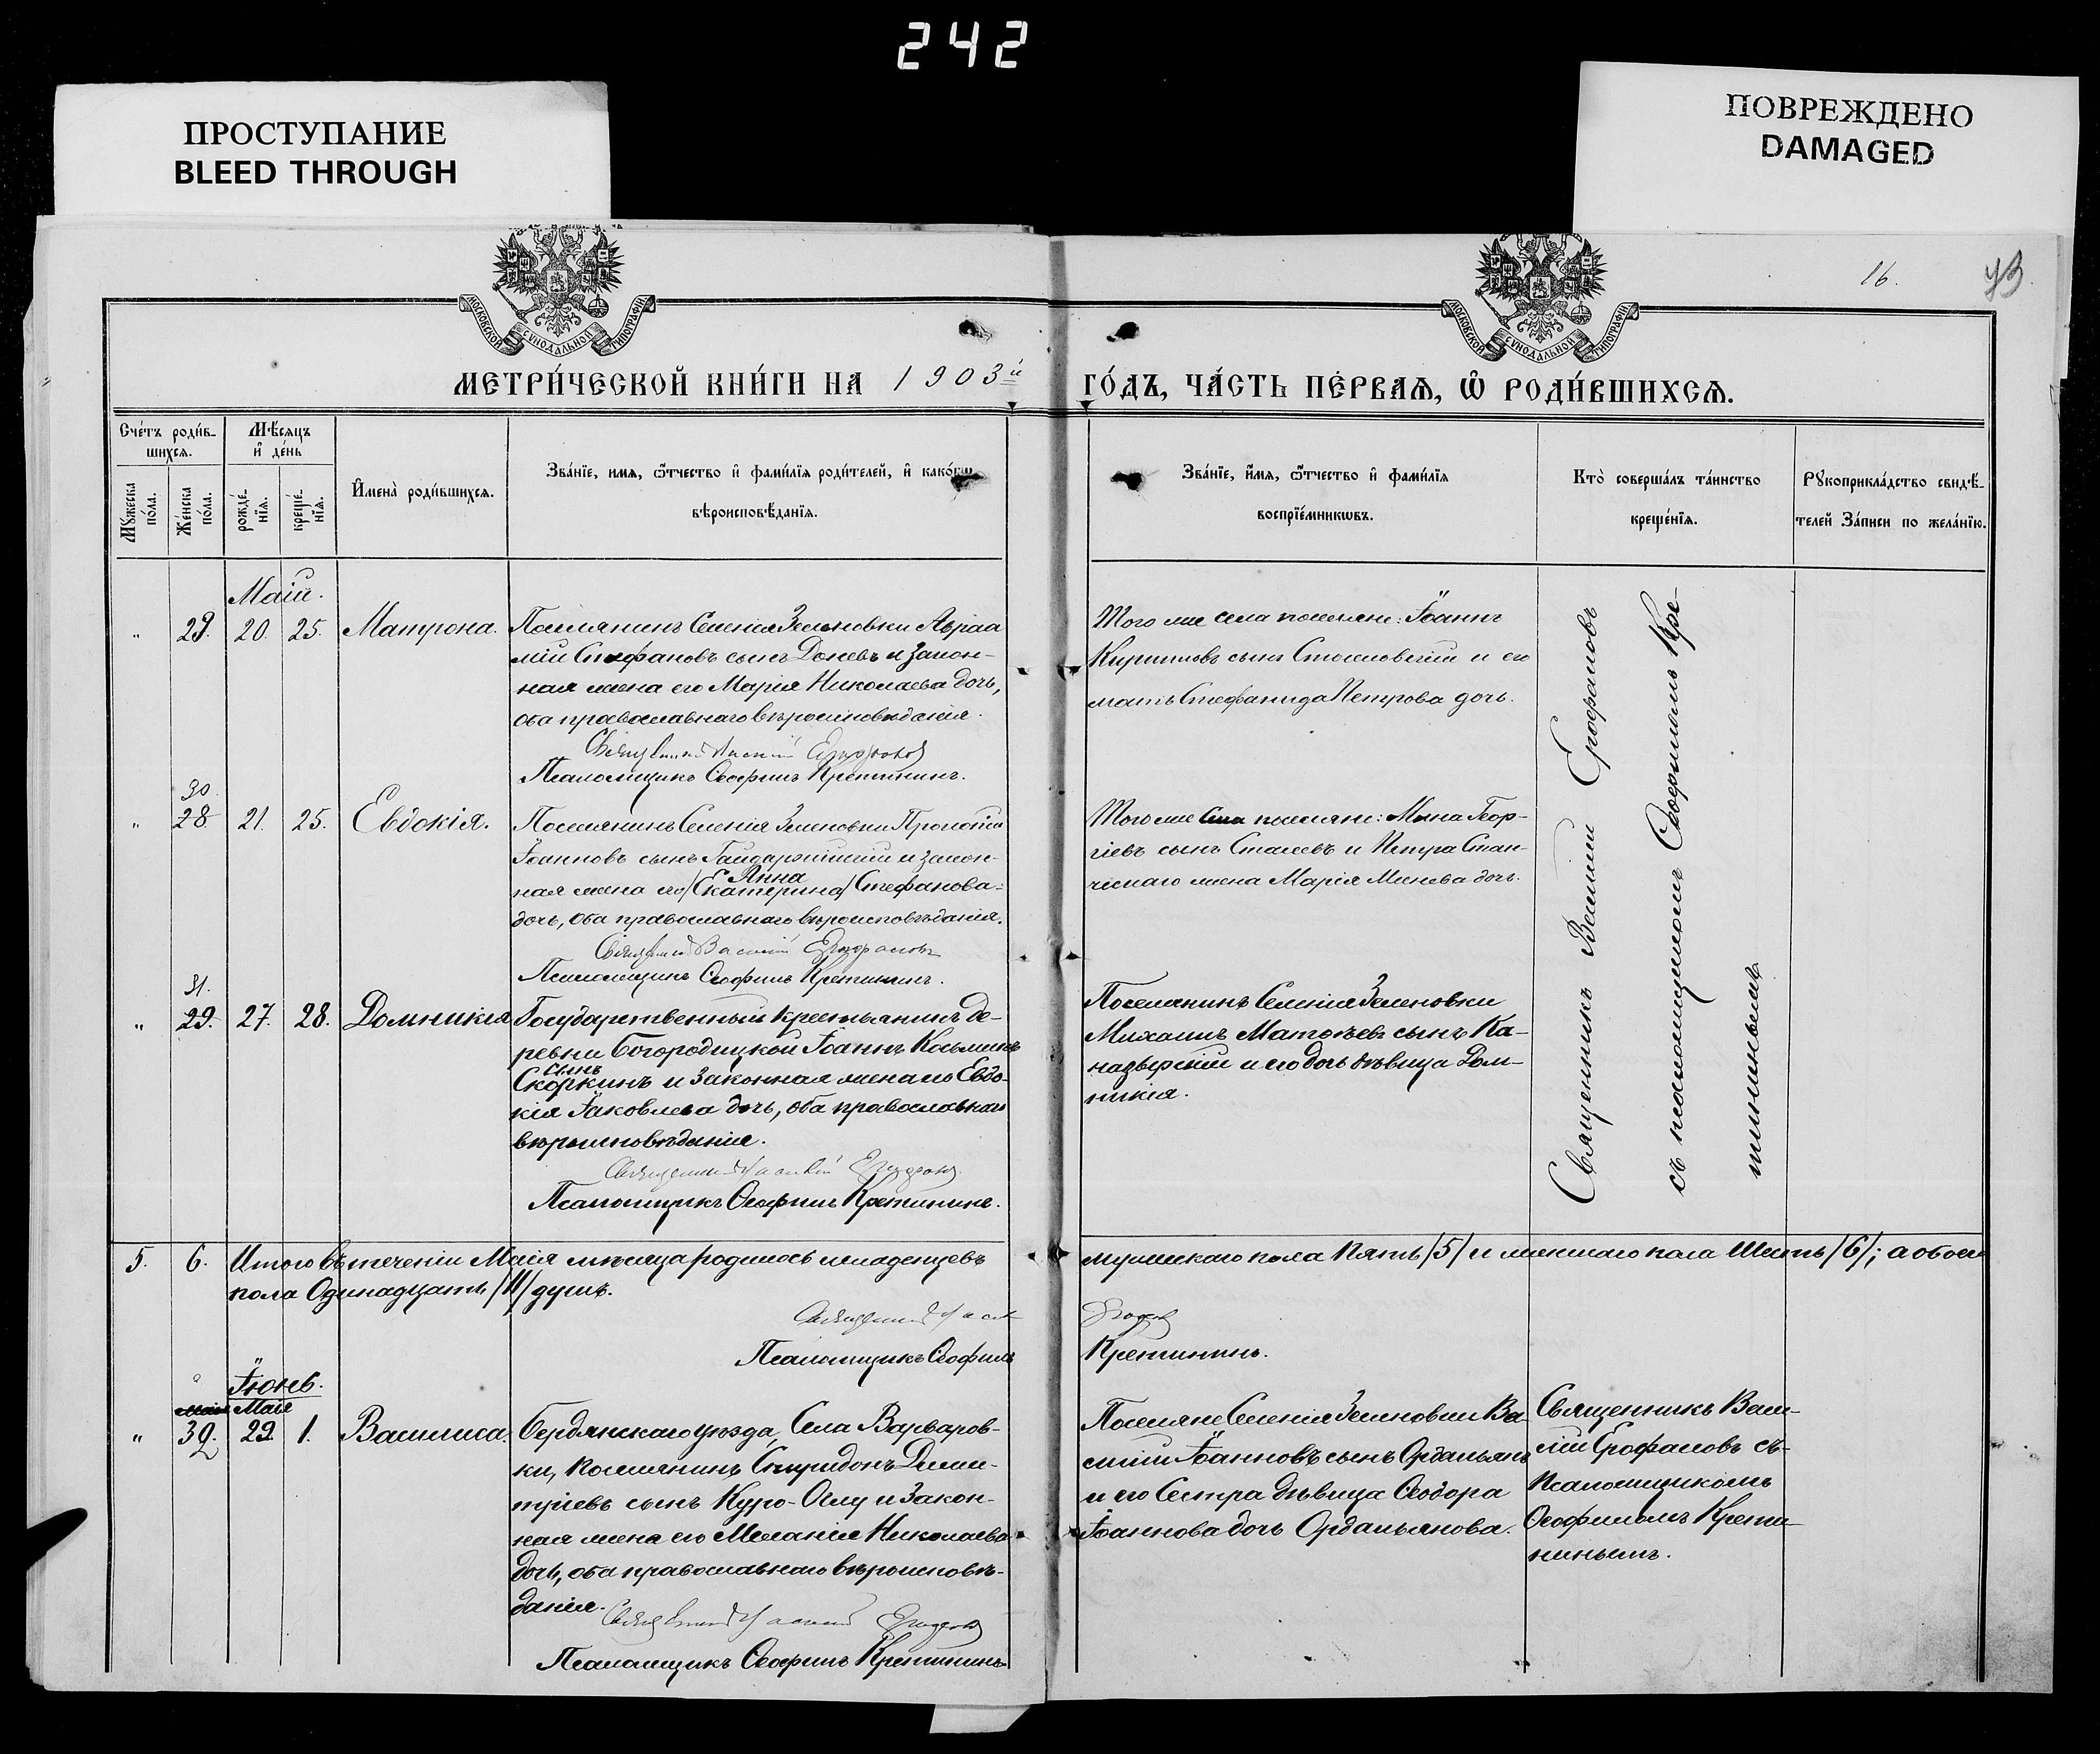 242
ПРОСТУПАНИЕ
BLEED THROUGH
ПОВРЕЖДЕНО
DAMAGED
МОСКОВСКОЙ СѴНОДАЛЬНОЙ ТИПОГРАФІИ
МОСКОВСКОЙ СѴНОДАЛЬНОЙ ТИПОГРАФІИ
16.
МЕТРИ́ЧЕСКОЙ КНИ́ГИ НА 1903й
ГО́ДЪ, ЧА́СТЬ ПЕ́РВАѦ, Ѽ РОДИ́ВШИХСѦ.
Сче́тъ роди́в-
шихсѧ.
Мѣ́сѧцъ
и҆ де́нь
Мꙋ́жеска
по́ла.
Же́нска
по́ла.
рожде́-
нїѧ.
креще́-
нїѧ.
И҆мена̀ роди́вшихсѧ.
Зва́нїе, имѧ, ѻ҆́тчество и҆ фами́лїѧ роди́телей, и҆ како́гѡ
вѣроисповѣ́данїѧ.
Зва́нїе, и҆́мѧ, ѻ҆́тчество и҆ фами́лїѧ
воспрїе́мникѡвъ.
Кто̀ соверша́лъ та́инство
креще́нїѧ.
Рꙋкоприкла́дство свидѣ́-
телей За́писи по жела́нїю.
Маій.
" 29. 20. 25. Матрона. Поселянинъ Селенія Зеленовки Авраа
мій Стефановъ сынъ Доневъ и закон-
ная жена его Марія Николаева дочь,
оба православнаго вѣроисповѣданія.
Священникъ Василій Ерофаловъ
Псаломщикъ Ѳеофилъ Кретининъ.
Того же села поселяне: Іоаннъ
Кирилловъ сынъ и его
мать Стефанида Петрова дочь.
30
" 28. 21. 25. Евдокія. Поселянинъ Селенія Зеленовки Прокопій
Іоанновъ сынъ Гайдаржійскій и закон-
Анна
ная жена его /Екатерина/ Стефанова
дочь, оба православнаго вѣроисповѣданія.
Священникъ Василій Ерофаловъ
Псаломщикъ Ѳеофилъ Кретининъ.
Того же села поселяне: Мина Геор-
гіевъ сынъ Сталевъ и Петра Стан-
жена Марія Минева дочь.
31.
" 29. 27. 28. Домникія Государственный крестьянинъ де-
ревни Богородицкой Іоаннъ Козьминъ
сынъ
Скоркинъ и законная жена его Евдо-
кія Іаковлева дочь, оба православнаго
вѣроисповѣданія.
Священникъ Василій Ерофаловъ
Псаломщикъ Ѳеофилъ Кретининъ.
Поселянинъ Селенія Зеленовки
Михаилъ Матѳеевъ сынъ Ка-
назирскій и его дочь дѣвица Дом-
никія.
Священникъ Василій Ерофаловъ
съ псаломщикомъ Ѳеофиломъ Кре-
тининымъ
5. 6. Итого въ теченіи Маія мѣсяца родилось младенцевъ мужескаго пола Пять /5/ и женскаго пола Шесть /6/; а обоего
пола Одинадцать /11/ душъ.
Священникъ
Псаломщикъ Ѳеофилъ Кретининъ.
Іюнь.
Маія
" 32. 29. 1. Василиса. Бердянскаго уѣзда, Села Варваров-
ки, поселянинъ Спиридонъ Дими-
тріевъ сынъ Куро-Оглу и закон-
ная жена его Меланія Николаева
дочь, оба православнаго вѣроисповѣ-
данія.
Священникъ Василій Ерофаловъ
Псаломщикъ Ѳеофилъ Кретининъ
Поселяне Селенія Зеленовки Ва-
силій Іоанновъ сынъ Ордальянъ
и его Сестра дѣвица Ѳеодора
Іоаннова дочь Ордальянова.
Священникъ Васи-
лій Ерофаловъ съ
Псаломщикомъ
Ѳеофиломъ Крети-
нинымъ.